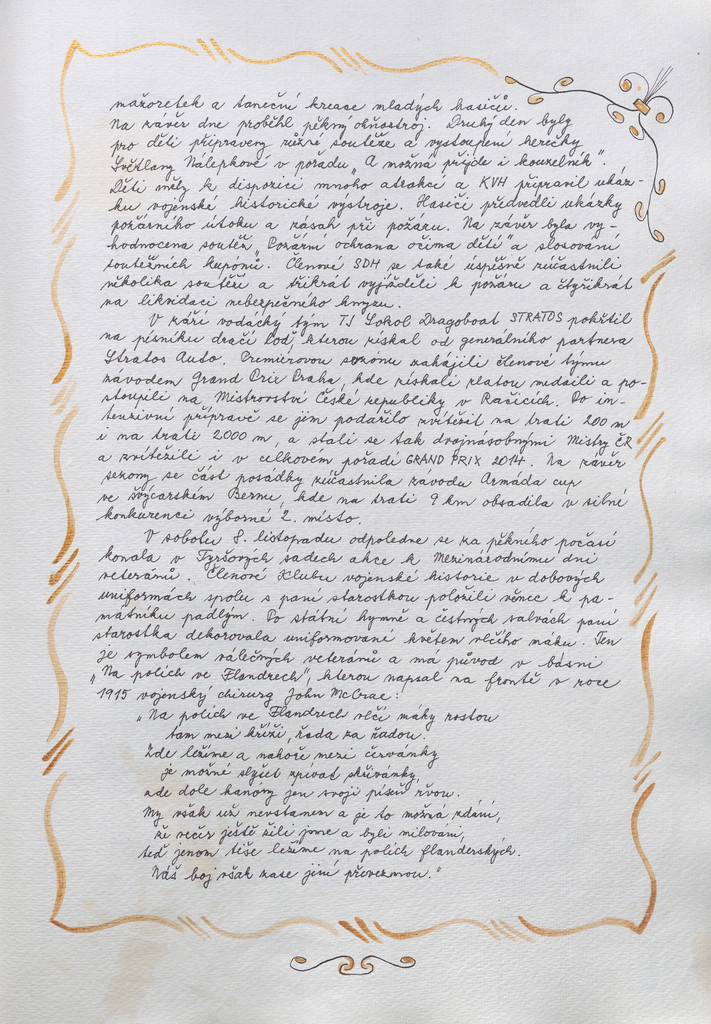 mažoretek a taneční kreace mladých hasičů.
Na závěr dne proběhl pěkný ohňostroj. Druhý den byly
pro děti připraveny různé soutěže a vystoupení herečky
Světlany Nálepkové v pořadu „A možná přijde i kouzelník".
Děti měly k dispozici mnoho atrakcí a KVH připravil ukáz-
ku vojenské historické výstroje. Hasiči předvedli ukázky
požárního útoku a zásah při požáru. Na závěr byla vy-
hodnocena soutěž „Požární ochrana očima dětí" a slosování
soutěžních kupónů. Členové SDH se také úspěšně zúčastnili
několika soutěží a třikrát vyjížděli k požáru a čtyřikrát
na likvidaci nebezpečného hmyzu.
V září vodácký tým TJ Sokol Dragoboat STRATOS pokřtil
na písníku dračí loď, kterou získal od generálního partnera
Stratos Auto. Premiérovou sezónu zahájili členové týmu
závodem Grand Prix Praha, kde získali zlatou medaili a po-
stoupili na Mistrovství České republiky v Račicích. Po in-
tenzivní přípravě se jim podařilo zvítězit na trati 200 m
i na trati 2000 m, a stali se tak dvojnásobnými Mistry ČR
a zvítězili i v celkovém pořadí GRAND PRIX 2014. Na závěr
sezony se část posádky zúčastnila závodu Armáda cup
ve švýcarském Bernu, kde na trati 9 km obsadila v silné
konkurenci výborné 2. místo.
V sobotu 8. listopadu odpoledne se za pěkného počasí
konala v Tyršových sadech akce k Mezinárodnímu dni
veteránů. Členové Klubu vojenské historie v dobových
uniformách spolu s paní starostkou položili věnec k pa-
mátníku padlým. Po státní hymně a čestných salvách paní
starostka dekorovala uniformované květem vlčího máku. Ten
je symbolem válečných veteránů a má původ v básni
„Na polích ve Flandrech", kterou napsal na frontě v roce
1915 vojenský chirurg John McCrae:
„Na polích ve Flandrech vlčí máky rostou
tam mezi kříži, řada za řadou.
Zde ležíme a nahoře mezi červánky
je možné slyšet zpívat skřivánky,
zde dole kanóny jen svoji píseň řvou.
My však už nevstanem a je to možná zdání,
že večer ještě žili jsme a byli milováni,
teď jenom tiše ležíme na polích flanderských.
Náš boj však zase jiní převezmou."